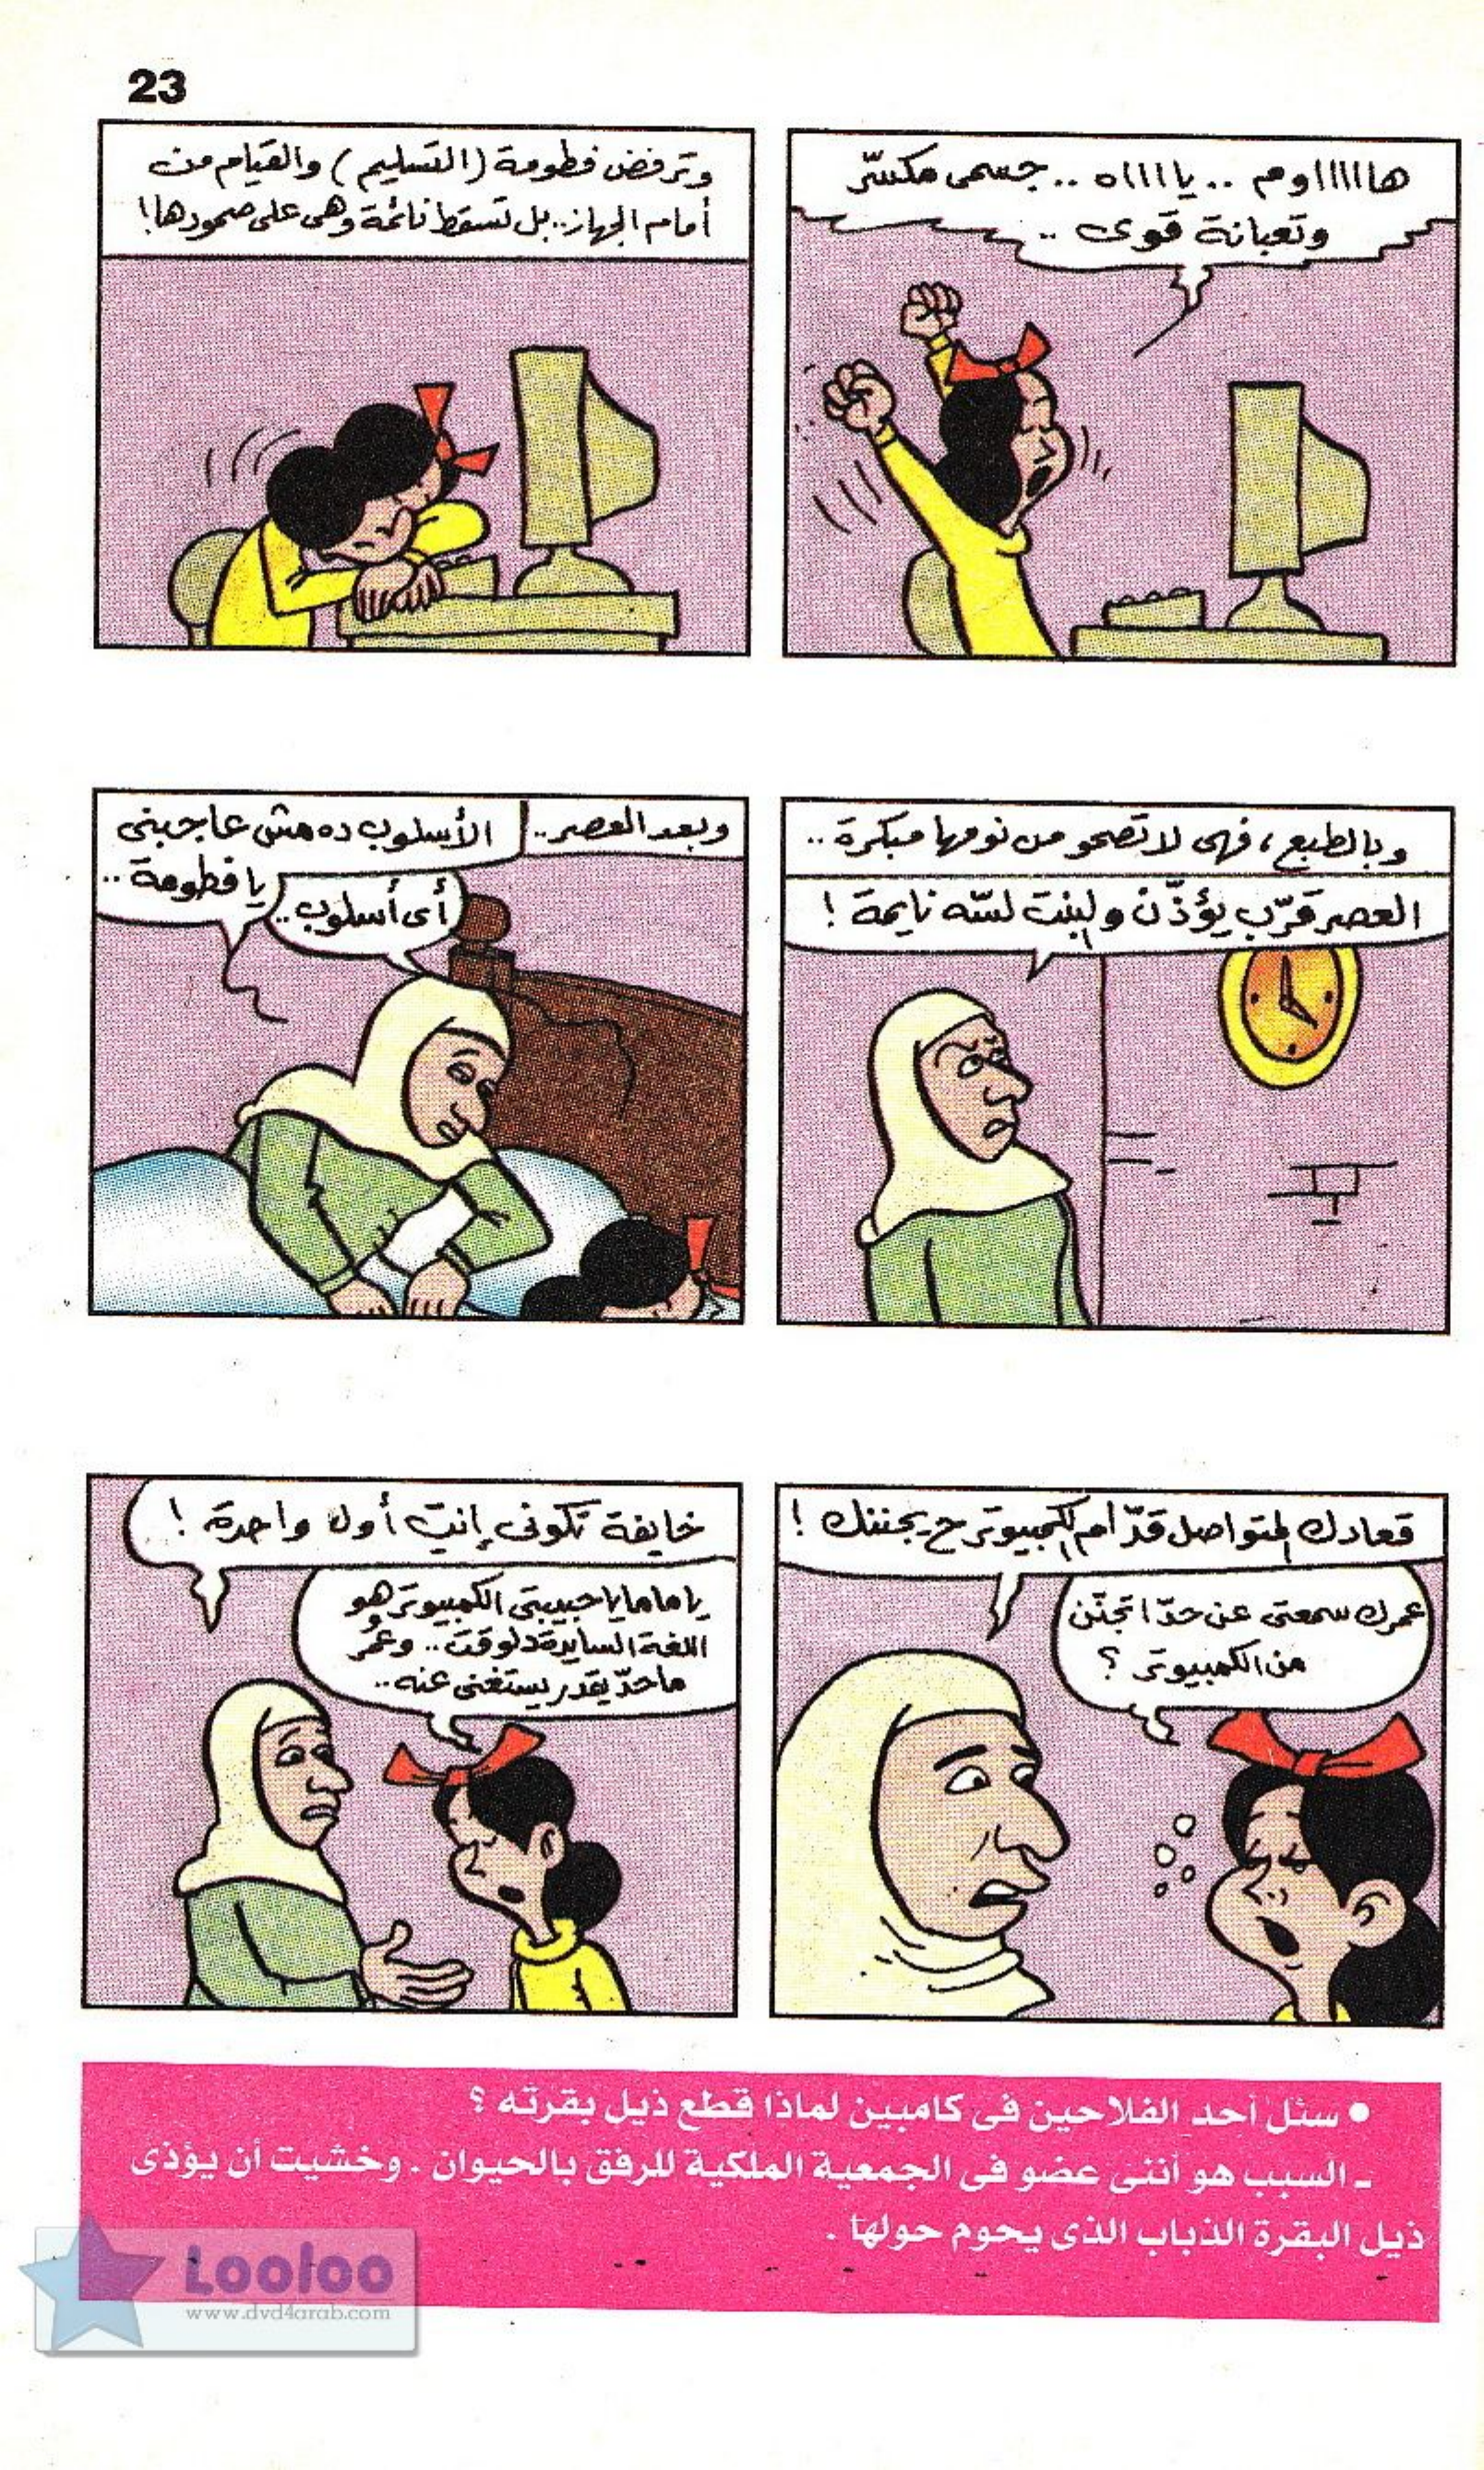 23
هااااااوم .. يااااه .. جسمى مكسّر
وتعبانة قوى ..
وترفض فطومة (التسليم) والقيام من
أمام الجهاز.. بل تسقط نائمة وهى على صمودها!
وبالطبع، فهى لا تصحو من نومها مبكرة ..
العصر قرّب يؤذّن والبنت لسّه نايمة !
وبعد العصر ..
الأسلوب ده مش عاجبنى
يا فطومة ..
أى أسلوب ..
قعادك المتواصل قدّام الكمبيوتر ح يجننك !
عمرك سمعتى عن حدّ اتجنّن
من الكمبيوتر ؟
خايفة تكونى إنتِ أول واحدة !
يا ماما يا حبيبتى الكمبيوتر هو
اللغة السايدة دلوقت .. وعمر
ما حدّ يقدر يستغنى عنه ..
● سئل أحد الفلاحين فى كامبين لماذا قطع ذيل بقرته ؟
ـ السبب هو أننى عضو فى الجمعية الملكية للرفق بالحيوان . وخشيت أن يؤذى
ذيل البقرة الذباب الذى يحوم حولها .
Looloo
www.dvd4arab.com